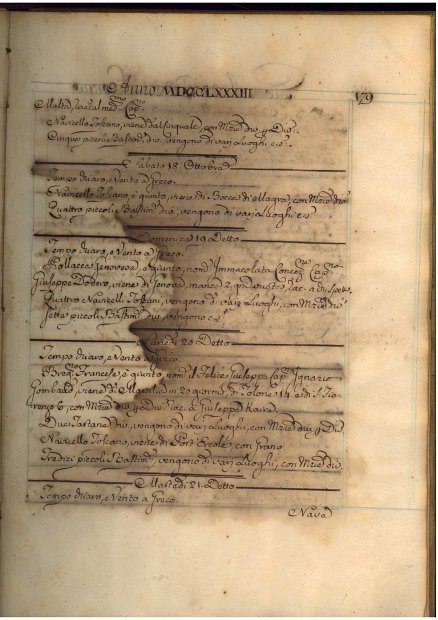 Anno MDCCLXXXIII
179
Malta,
Navicello Toscano, viene dal con Mrzie div p Div
Cinque piccoli Bastim div, vengono di varj Luoghi e s
Sabato 18 Ottobre
Tempo chiaro, e Vento a Greco.
Navicello Toscano, è giunto, viene di Bocca di Magra, con Mrzie div
Quattro piccoli Bastim div, vengono di varj Luoghi e s
Domenica 19 Detto
Tempo chiaro, e Vento a Greco.
Pollacca Genovese, è giunto, nom Immacolata Concez Cap
Giuseppe Dodero, viene di Genova, manca
Quattro Navicelli Toscani, vengono di varj Luoghi, con Mrzie div
Sette piccoli Bastim div, vengono e s
Lunedì 20 Detto
Tempo chiaro, e Vento a Greco.
Brig Francese, è giunto, nom il Felice Giuseppe Cap Ignazio
viene di Marsilia in 20 giorni, di Tolone 14 e di S Fio
renzo 6, con Mrzie div p Div rac a Giuseppe
Due Tartane div, vengono di varj Luoghi, con Mrzie div, p Div
Navicello Toscano, viene di Port Ercole, con Grano
Tredici piccoli Bastim, vengono di varj Luoghi, con Mrzie div
Martedì 21 Detto
Tempo chiaro, e Vento a Greco.
Nave